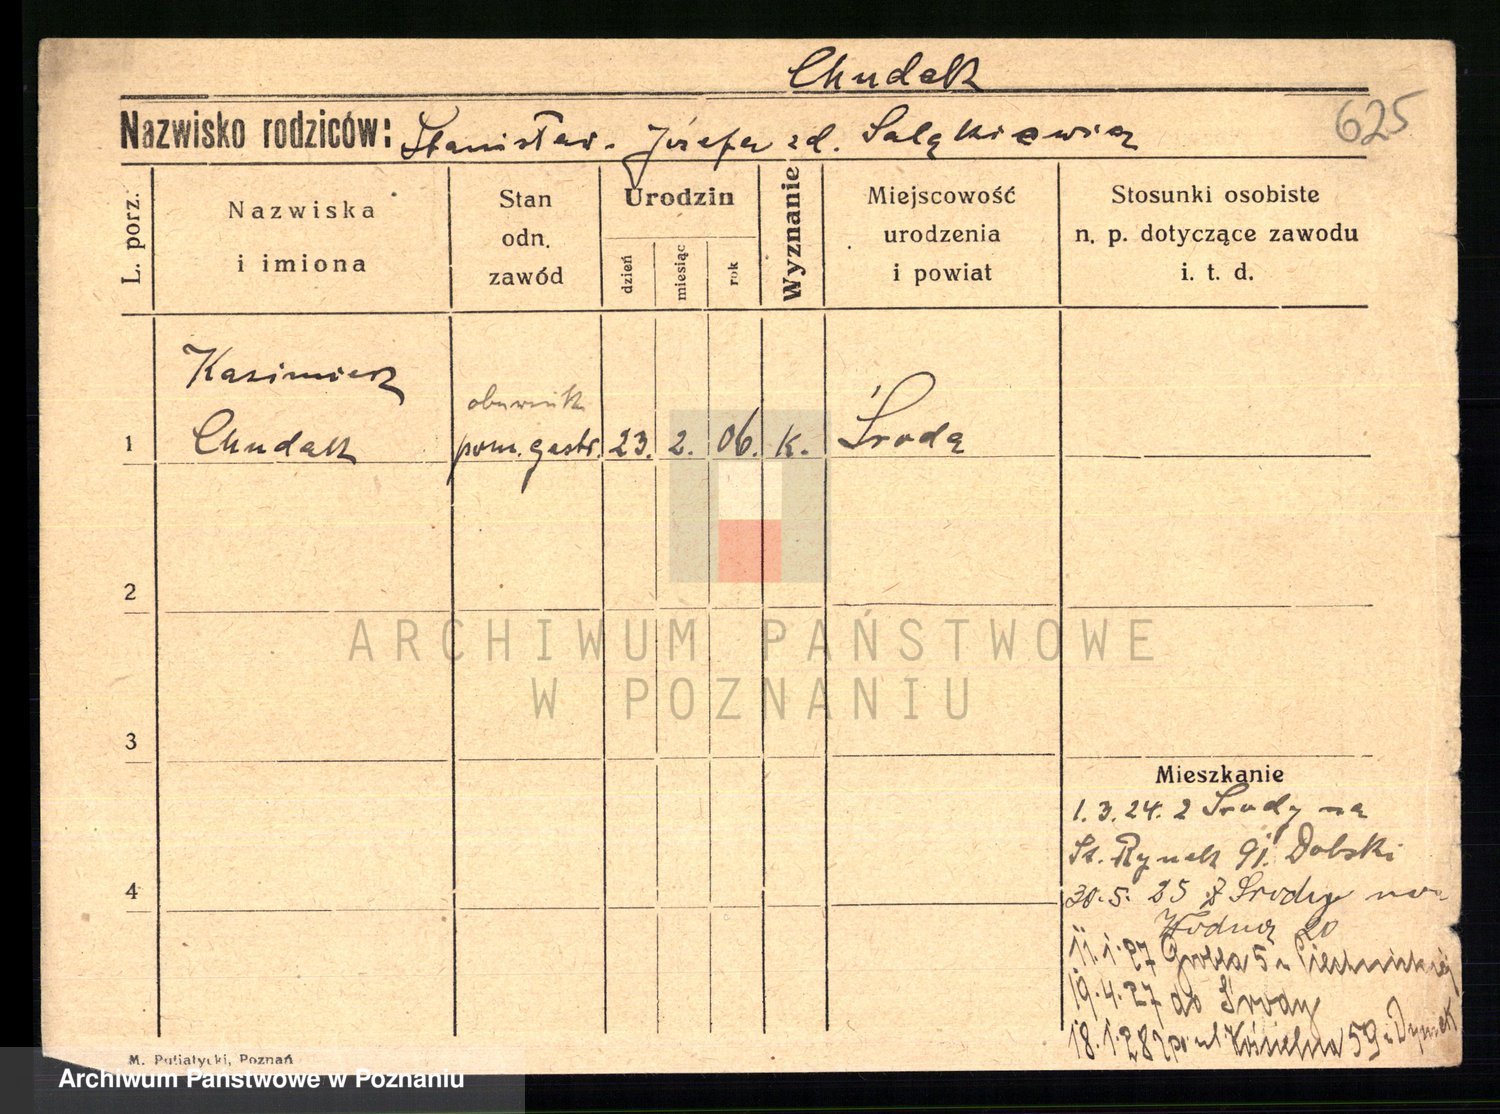 Chudak
625
Nazwisko rodziców: Stanisław - Józefa zd. Saląkiewicz
L. porz.
Nazwiska
i imiona
Stan
odn.
zawód
Urodzin
dzień
miesiąc
rok
Wyznanie
Miejscowość
urodzenia
i powiat
Stosunki osobiste
n. p. dotyczące zawodu
i. t. d.
Kazimierz
obuwnik
1 Chudak pom. gastr. 23. 2. 06. k. Środa
2
ARCHIWUM PAŃSTWOWE
W POZNANIU
3
Mieszkanie
1. 3. 24. z Środy na
St. Rynek 91. Dolski
4
30. 5. 25 z Środy na
Wodna 20
11. 1. 27 Grobla 5
19. 4. 27 do Środy
18. 1. 28 59
M. Putiatycki, Poznań
Archiwum Państwowe w Poznaniu